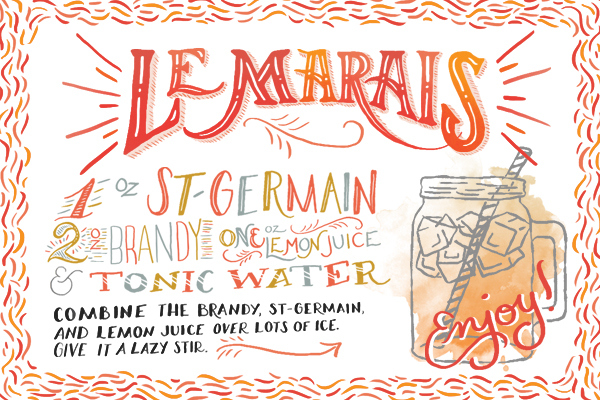 LE MARAIS
1 OZ ST-GERMAIN
2 OZ BRANDY ONE OZ LEMON JUICE
& TONIC WATER
COMBINE THE BRANDY, ST-GERMAIN,
AND LEMON JUICE OVER LOTS OF ICE.
GIVE IT A LAZY STIR.
enjoy!